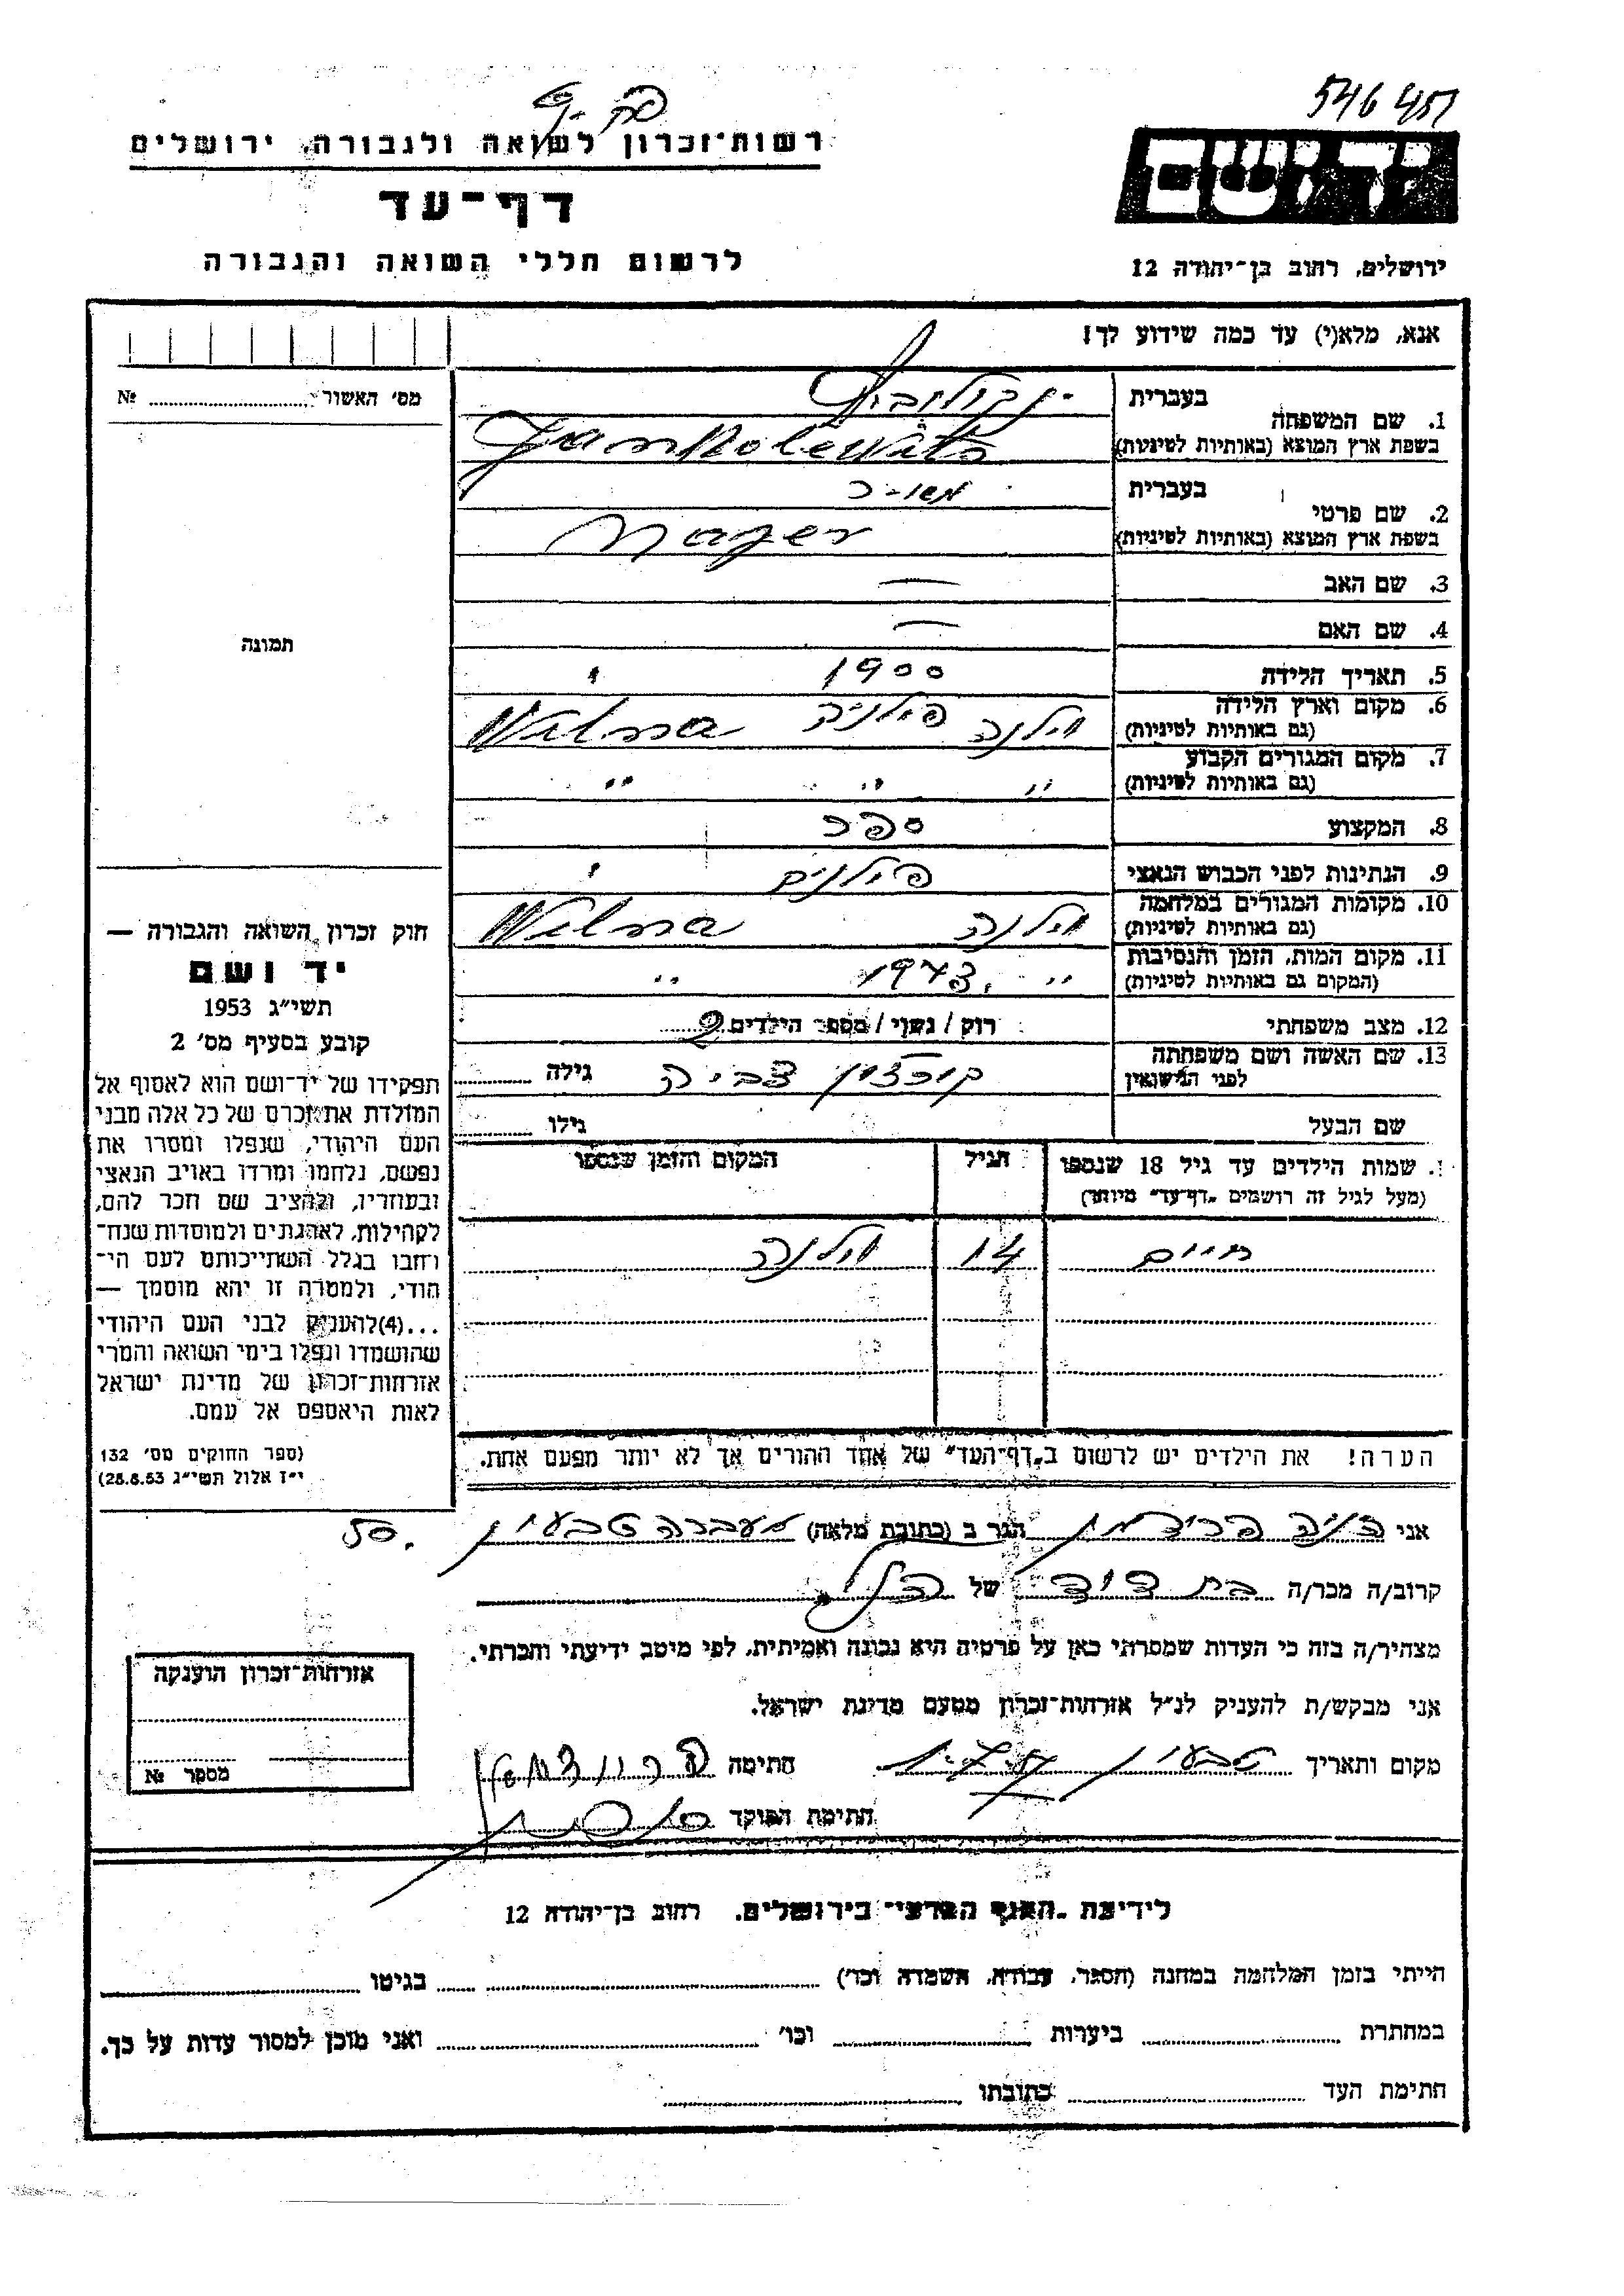 546451
רשות־זכרון לשואה ולגבורה, ירושלים
יד ושם
דף־עד
לרשום חללי השואה והגבורה
ירושלים, רחוב בן־יהודה 12
אנא, מלא(י) עד כמה שידוע לך!
מס' האשור № 
תמונה
חוק זכרון השואה והגבורה —
יד ושם
תשי"ג 1953
קובע בסעיף מס' 2
תפקידו של יד־ושם הוא לאסוף אל
המולדת את זכרם של כל אלה מבני
העם היהודי, שנפלו ומסרו את
נפשם, נלחמו ומרדו באויב הנאצי
ובעוזריו, ולהציב שם וזכר להם,
לקהילות, לארגונים ולמוסדות שנח־
רחבו בגלל השתייכותם לעם הי־
הודי, ולמטרה זו יהא מוסמך —
...(4) להעניק לבני העם היהודי
שהושמדו ונפלו בימי השואה והמרי
אזרחות־זכרון של מדינת ישראל
לאות היאספם אל עמם.
(ספר החוקים מס' 132
י"ז אלול תשי"ג 28.8.53)
1. שם המשפחה
בעברית
בשפת ארץ המוצא (באותיות לטיניות) Jankolewits
2. שם פרטי
בעברית מאיר
בשפת ארץ המוצא (באותיות לטיניות) Majer
3. שם האב —
4. שם האם —
5. תאריך הלידה 1900
6. מקום וארץ הלידה (גם באותיות לטיניות) וילנה פולניה Wilna
7. מקום המגורים הקבוע (גם באותיות לטיניות) " " "
8. המקצוע ספר
9. הנתינות לפני הכבוש הנאצי פולנים
10. מקומות המגורים במלחמה (גם באותיות לטיניות) וילנה Wilna
11. מקום המות, הזמן והנסיבות (המקום גם באותיות לטיניות) " 1943. "
12. מצב משפחתי רוק / נשוי / מספר הילדים 2
13. שם האשה ושם משפחתה לפני הנישואין צביה גילה
שם הבעל גילו
שמות הילדים עד גיל 18 שנספו הגיל המקום והזמן שנספו
(מעל לגיל זה רושמים "דף־עד" מיוחד)
חיים 14 וילנה
הערה! את הילדים יש לרשום ב"דף־העד" של אחד ההורים אך לא יותר מפעם אחת.
אני הגר ב (כתובת מלאה) מעברה טבעון 50.
קרוב/ה מכר/ה בת דוד של הנ"ל
מצהיר/ה בזה כי העדות שמסרתי כאן על פרטיה היא נכונה ואמיתית, לפי מיטב ידיעתי והכרתי.
אני מבקש/ת להעניק לנ"ל אזרחות־זכרון מטעם מדינת ישראל.
מקום ותאריך טבעון חתימה
חתימת הפוקד
אזרחות־זכרון הוענקה
מספר №
לידיעת "האגף המדעי" בירושלים, רחוב בן־יהודה 12
הייתי בזמן המלחמה במחנה (הסגר, עבודה, השמדה וכו') בגיטו
במחתרת ביערות וכו' ואני מוכן למסור עדות על כך.
חתימת העד כתובתו